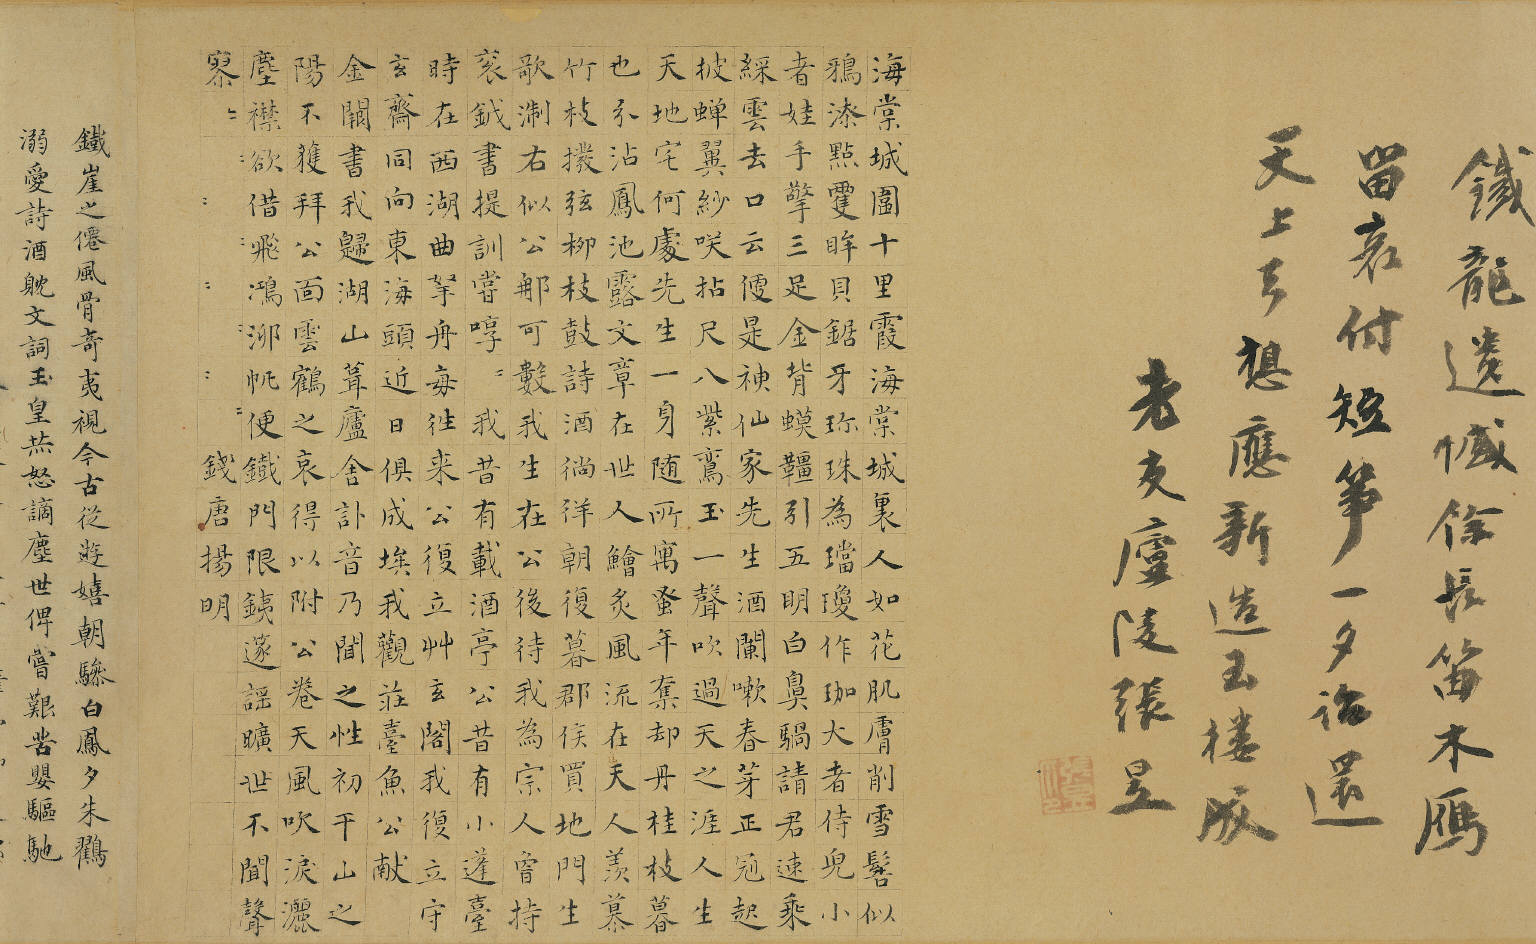 鐵龍遺憾餘長笛木鴈
留哀付短箏一夕詔還
天上去想應新造玉樓成
老友廬陵張昱
海棠城圍十里霞海棠城裏人如花肌膚削雪髻似
鴉漆點雙眸貝鋸牙珎珠為璫瓊作珈大者侍兒小
者娃手擎三足金背蟆韁引五明白鼻騧請君速乘
綵雲去口云便是神仙家先生酒闌嗽春芽正冠起
披蟬翼紗咲拈尺八紫鸞玉一聲吹過天之涯人生
天地宅何處先生一身随所寓蚤年奪却丹桂枝暮
也分沾鳳池露文章在世人鱠炙風流在天人羨慕
竹枝撥弦柳枝鼓詩酒徜徉朝復暮郡侯買地門生
歌淛右似公那可數我生在公後待我為宗人曾持
衮鉞書提訓嘗啍〻我昔有載酒亭公昔有小蓬臺
時在西湖曲拏舟每徃来公復立艸玄閣我復立守
玄齋同向東海頭近日俱成埃我觀莊臺魚公献
金閶書我歸湖山葺廬舍訃音乃聞之性初干山之
陽不獲拜公面雲鶴之哀得以附公卷天風吹淚灑
塵襟欲借飛鴻泖帆便鐵門限銕邃謡曠世不聞聲
寥〻　錢唐揚明
鐵崖之僊風骨奇夷視今古從遊嬉朝驂白鳳夕朱鸐
溺愛詩酒躭文詞玉皇恭怒謫塵世俾嘗艱苦嬰驅馳